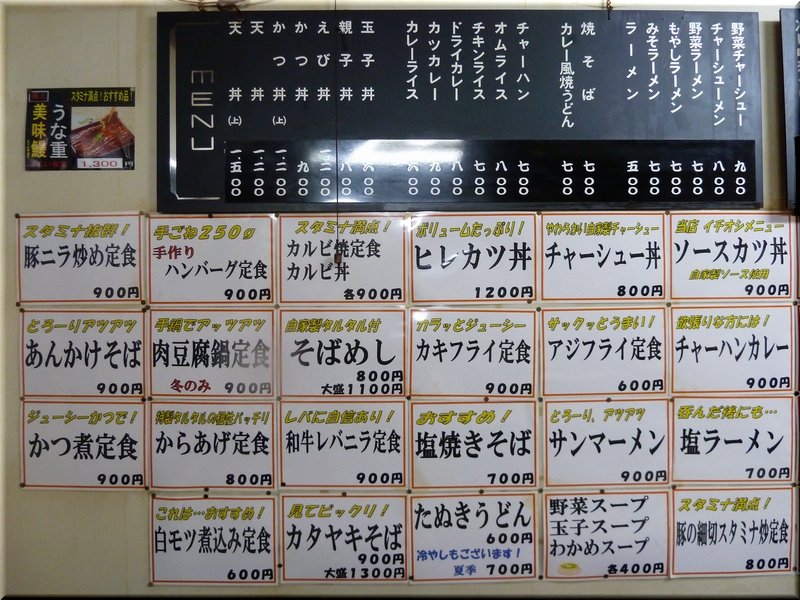 MENU
野菜チャーシュー 九〇〇
チャーシューメン 八〇〇
野菜ラーメン 七〇〇
もやしラーメン 七〇〇
みそラーメン 七〇〇
ラーメン 五〇〇
焼そば 七〇〇
カレー風焼うどん 七〇〇
チャーハン 七〇〇
オムライス 八〇〇
チキンライス 七〇〇
ドライカレー 八〇〇
カツカレー 九〇〇
カレーライス 六〇〇
玉子丼 六〇〇
親子丼 八〇〇
えび丼 一.二〇〇
かつ丼 九〇〇
かつ丼(上) 一.二〇〇
天丼 一.二〇〇
天丼(上) 一.五〇〇
スタミナ満点!おすすめ品!
うな重
美味鰻
1,300円
スタミナ抜群!
豚ニラ炒め定食
900円
手ごね250g
手作り
ハンバーグ定食
900円
スタミナ満点!
カルビ焼定食
カルビ丼
各900円
ボリュームたっぷり!
ヒレカツ丼
1200円
やわらかい自家製チャーシュー
チャーシュー丼
800円
当店 イチオシメニュー
ソースカツ丼
自家製ソース使用
900円
とろーりアツアツ
あんかけそば
900円
手鍋でアッツアツ
肉豆腐鍋定食
冬のみ 900円
自家製タルタル付
そばめし
800円
大盛1100円
カラッとジューシー
カキフライ定食
900円
サックッとうまい!
アジフライ定食
600円
欲張りな方には!
チャーハンカレー
900円
ジューシーかつで!
かつ煮定食
900円
特製タルタルの相性バッチリ
からあげ定食
800円
レバに自信あり!
和牛レバニラ定食
900円
おすすめ!
塩焼きそば
700円
とろーり、アツアツ
サンマーメン
900円
呑んだ後にも…
塩ラーメン
700円
これは…おすすめ!
白モツ煮込み定食
600円
見てビックリ!
カタヤキそば
900円
大盛1300円
たぬきうどん
600円
冷やしもございます!
夏季 700円
野菜スープ
玉子スープ
わかめスープ
各400円
スタミナ満点!
豚の細切スタミナ炒定食
800円